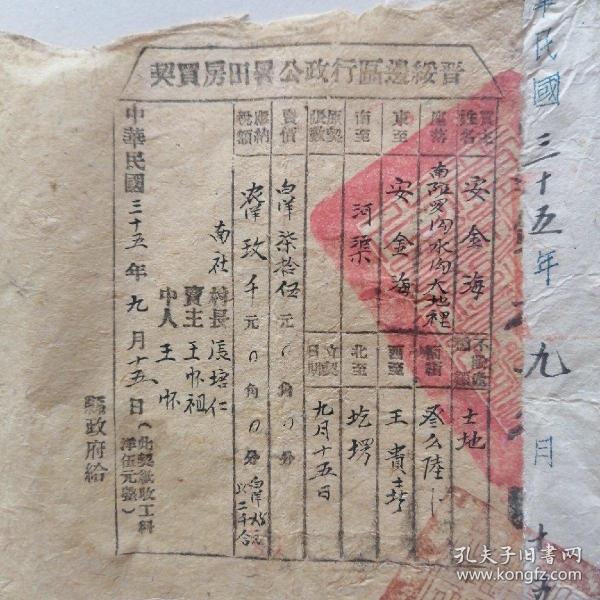 晉綏邊區行政公署田房買契
買主姓名
安金海
不動產種類
土地
座落
南雅罗沟水沟大地裡
面積
叁么陸
東至
安金海
西至
王貴
南至
河渠
北至
圪塄
原契張數
立契日期
九月十五日
賣價
白洋柒拾伍元〇角〇分
應納稅額
农洋玫千元〇角〇分
南社
村長 馮培仁
賣主 王怀祖
中人 王怀
中華民國三十五年九月十五日(此契紙收工料洋伍元整)
縣政府給
華民國三十五年九月十五
孔夫子旧书网
www.kongfz.com